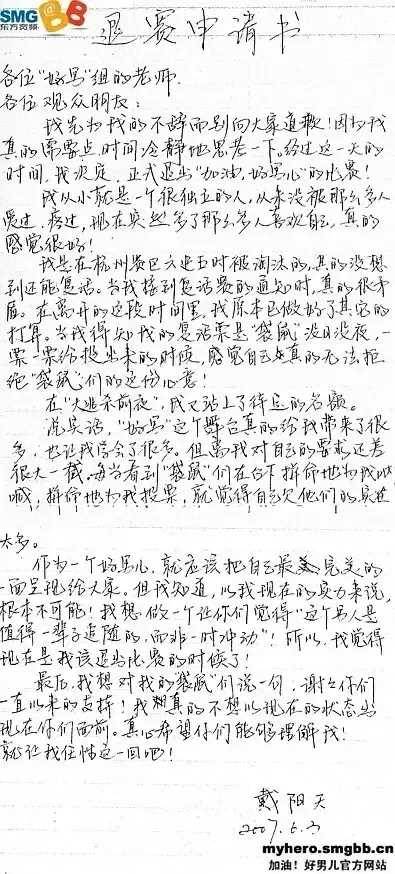 SMG BB
东方宽频
退赛申请书
各位"好男"组的老师.
各位观众朋友:
我先为我的不辞而别向大家道歉!因为我
真的需要点时间冷静地思考一下。经过这一天的
时间,我决定,正式退出"加油,好男儿"的比赛!
我从小就是一个很独立的人,从来没被那么多人
爱过、疼过,现在突然多了那么多人喜欢自己,真的
感觉很好!
我是在杭州赛区六进五时被淘汰的,真的没想
到还能复活。当我接到复活赛的通知时,真的很矛
盾。在离开的这段时间里,我原本已做好了其它的
打算。当我得知我的复活票是"袋鼠"没日没夜,一
票一票给投出来的时候,感觉自己真的无法拒
绝"袋鼠"们的这份心意!
在"大追杀前夜",我又站上了待定的名额。
说实话,"好男"这个舞台真的给我带来了很
多,也让我学会了很多。但离我对自己的要求还差
很大一截。每当看到"袋鼠"们在台下拼命地为我呐
喊,拼命地为我投票,就觉得自己欠他们的实在
太多。
作为一个好男儿,就应该把自己最完美的
一面呈现给大家。但我知道,以我现在的实力来说,
根本不可能!我想做一个让你们觉得"这个男人是
值得一辈子追随的,而非一时冲动"!所以,我觉得
现在是我该退出比赛的时候了!
最后,我想对我的"袋鼠"们说一句,谢谢你们
一直以来的支持!我真的不想以现在的状态出
现在你们面前。真心希望你们能够理解我!
就让我任性这一回吧!
戴阳天
2007.6.3
myhero.smgbb.cn
加油!好男儿官方网站